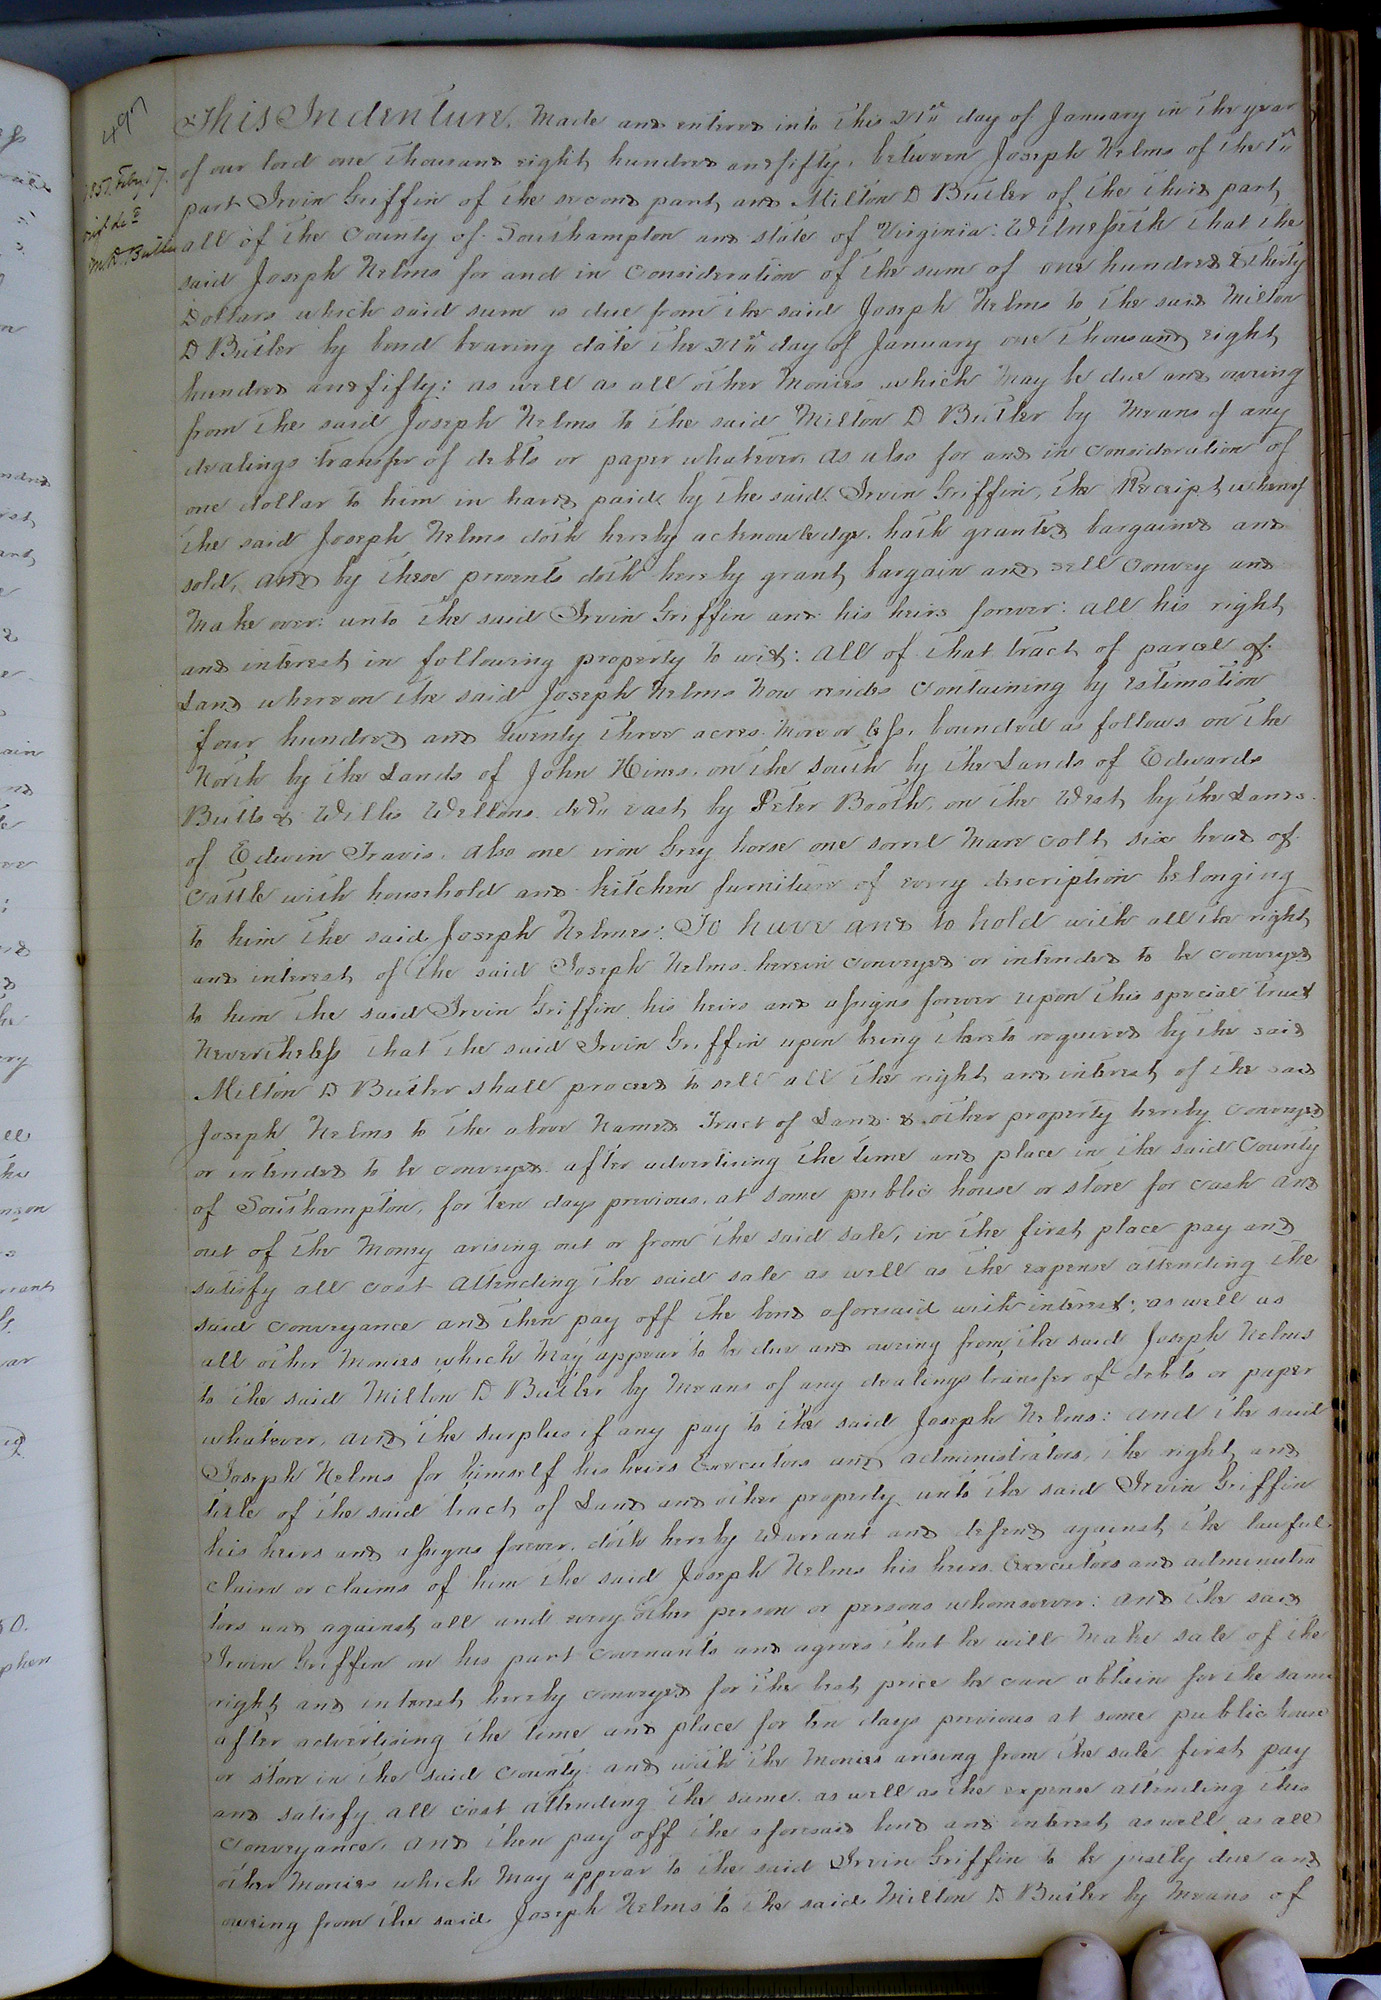 497
1851 Feby 17.
orig. del.d
M.D. Butler
This Indenture, Made and entered into this 21st day of January in the year
of our lord one thousand eight hundred and fifty, between Joseph Nelms of the 1st
part Irvin Griffin of the second part, and Milton D Butler of the third part,
all of the County of Southampton and state of Virginia: Witnesseth that the
said Joseph Nelms for and in consideration of the sum of one hundred & thirty
Dollars which said sum is due from the said Joseph Nelms to the said Milton
D Butler by bond bearing date the 21st day of January one thousand eight
hundred and fifty: as well as all other Monies which May be due and owing
from the said Joseph Nelms to the said Milton D Butler by Means of any
dealings transfer of debts or paper whatever, as also for and in consideration of
one dollar to him in hand paid by the said Irvin Griffin, the Receipt whereof
the said Joseph Nelms doth hereby acknowledge, hath granted bargained and
sold, and by these presents doth hereby grant, bargain and sell convey and
Make over: unto the said Irvin Griffin and his heirs forever: all his right
and interest in following property to wit: All of that tract of parcel of
Land whereon the said Joseph Nelms Now resides containing by estimation
four hundred and twenty three acres. More or less, bounded as follows on the
North by the Lands of John Hines, on the south by the Lands of Edwards
Butts & Willis Wellons decd. east by Peter Booth, on the West by the Lands
of Edwin Travis. Also one iron Grey horse one sorrel Mare colt six head of
Cattle with household and kitchen furniture of every description belonging
to him the said Joseph Nelms: To have and to hold with all the right
and interest of the said Joseph Nelms herein conveyed or intended to be conveyed
to him the said Irvin Griffin his heirs and assigns forever upon this special trust
Nevertheless that the said Irvin Griffin upon being thereto required by the said
Milton D Butler shall proceed to sell all the right and interest of the said
Joseph Nelms to the above Named Tract of Land & other property hereby conveyed
or intended to be conveyed. after advertising the time and place in the said County
of Southampton, for ten days previous, at some public house or store for cash and
out of the Money arising out or from the said sale, in the first place pay and
satisfy all cost attending the said sale as well as the expense attending the
said conveyance and then pay off the bond aforesaid with interest; as well as
all other Monies which May appear to be due and owing from the said Joseph Nelms
to the said Milton D Butler by Means of any dealings transfer of debts or paper
whatever, and the surplus if any pay to the said Joseph Nelms: and the said
Joseph Nelms for himself his heirs Executors and administrators, the right and
title of the said tract of Land and other property unto the said Irvin Griffin
his heirs and assigns forever. doth hereby Warrant and defend against the lawful
claim or claims of him the said Joseph Nelms his heirs Executors and administra
tors and against all and every other person or persons whomsoever: and the said
Irvin Griffin on his part covenants and agrees that he will Make sale of the
right and interest hereby conveyed for the best price he can obtain for the same
after advertising the time and place for ten days previous at some public house
or store in the said County: and with the Monies arising from the sale first pay
and satisfy all cost attending the same. as well as the expense attending this
conveyance, and then pay off the aforesaid bond and interest as well as all
other Monies which May appear to the said Irvin Griffin to be justly due and
owing from the said Joseph Nelms to the said Milton D Butler by Means of